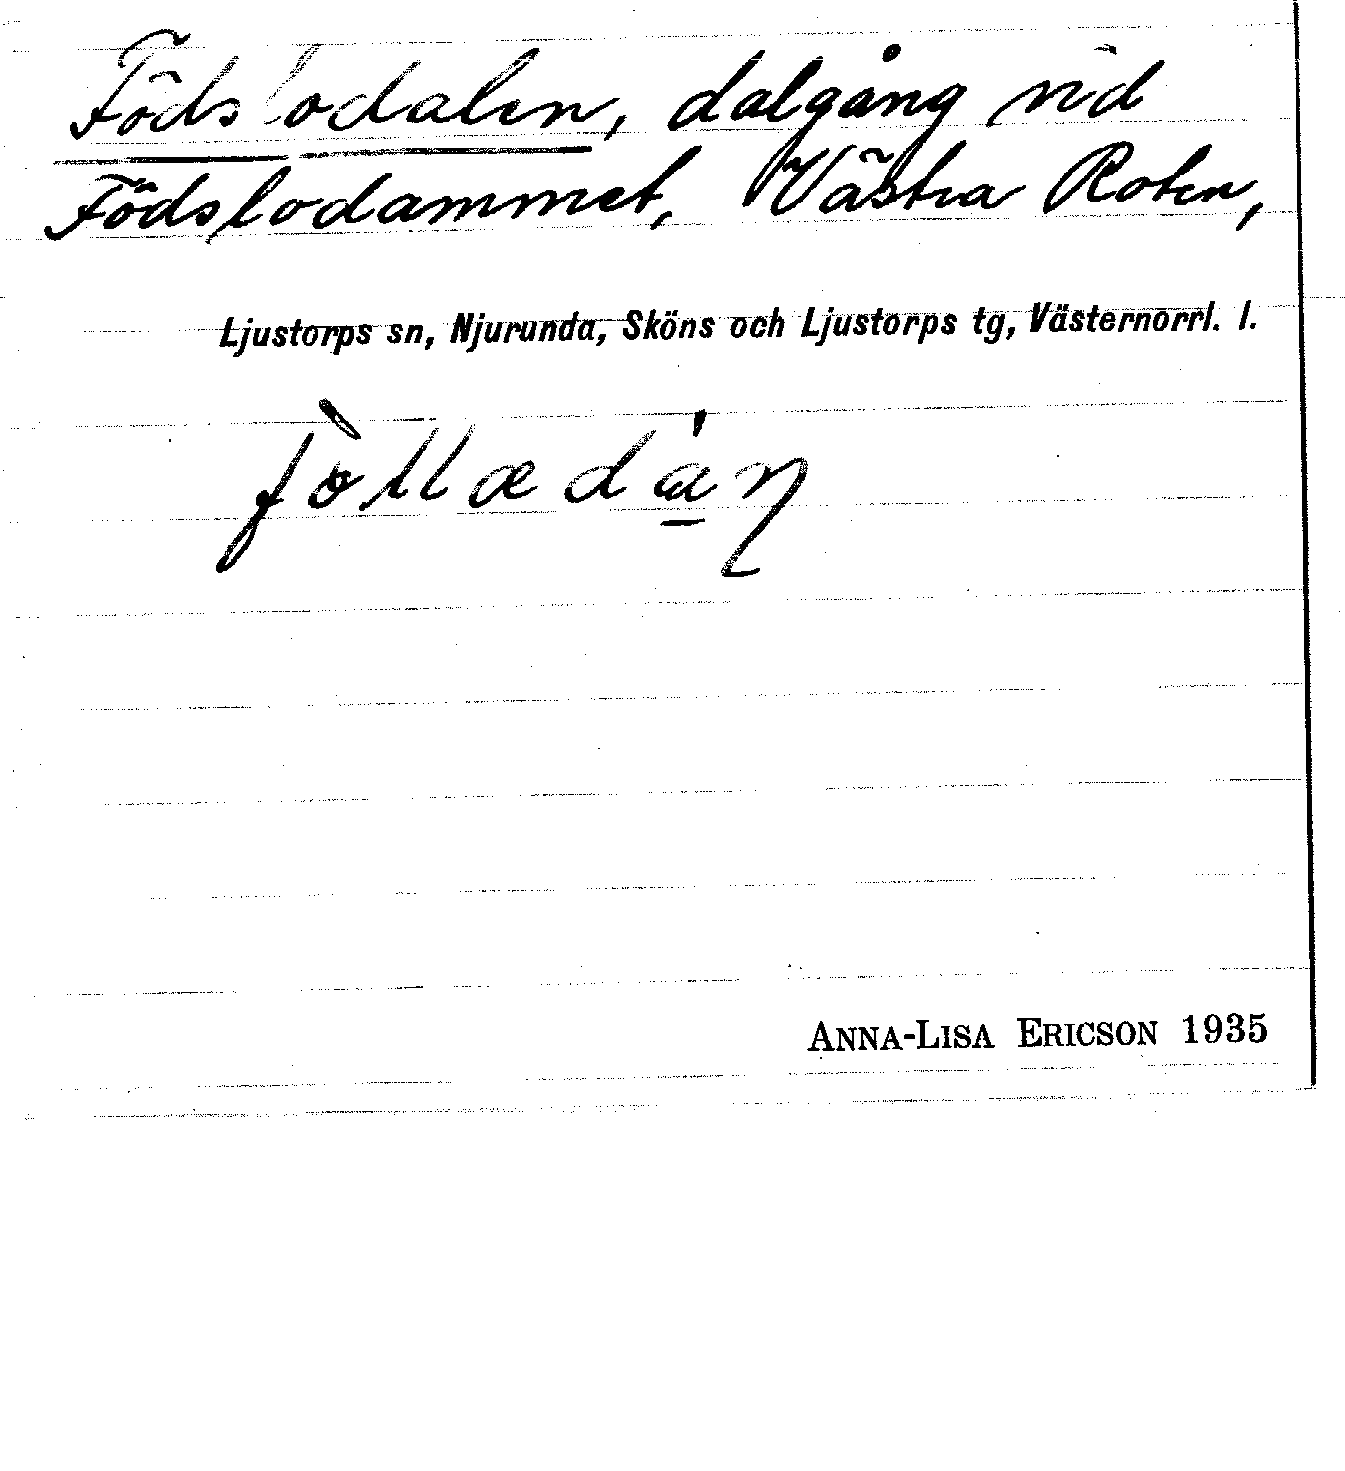 Födslodalen, dalgång vid
Födslodammet, Västra Roten,
Ljustorps sn, Njurunda, Sköns och Ljustorps tg, Västernorrl. l.
ANNA-LISA ERICSON 1935